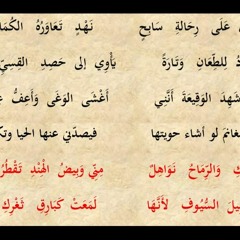 عَلَى رِحَالَةِ سَابِحٍ نَهْدٍ تَعَاوَرُهُ الكُمَا
دُ لِلطِّعَانِ وَتَارَةً يَأْوِي إِلَى حَصِدِ القِسِيِّ
شَهِدَ الوَقِيعَةَ أَنَّنِي أَغْشَى الوَغَى وَأَعِفُّ
مغانم لو أشاء حويتها فيصدّني عنها الحيا وتك
كِ وَالرِّمَاحُ نَوَاهِلٌ مِنِّي وَبِيضُ الْهِنْدِ تَقْطُرُ
يلَ السُّيُوفِ لأَنَّهَا لَمَعَتْ كَبَارِقِ ثَغْرِكِ